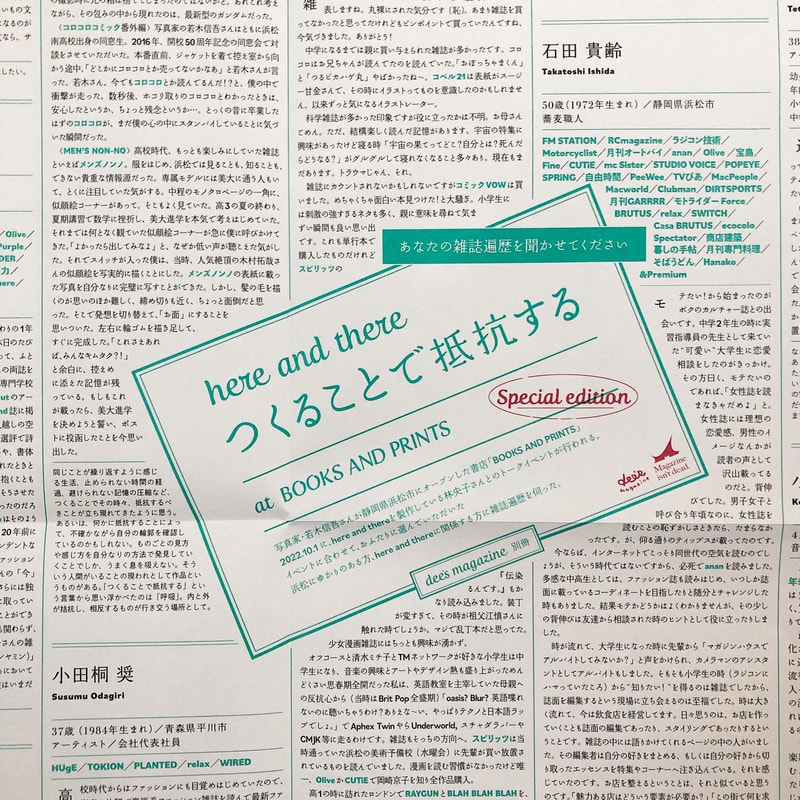 Olive/
Purple
小田桐 奨
Susumu Odagiri
37歳(1984年生まれ)/青森県平川市
アーティスト/会社代表社員
HUgE/TOKION/PLANTED/relax/WIRED
〈コロコロコミック番外編〉写真家の若木信吾さんはともに浜松
南高校出身の同窓生。2016年、開校50周年記念の同窓会で対
談をさせていただいた。本番直前、ジャケットを着て控え室から向
かう途中、「どこかにコロコロとか売ってないかなあ」と若木さんが言
った。若木さん、今でもコロコロとか読んでるんだ!?と、僕の中で
衝撃が走った。数秒後、ホコリ取りのコロコロとわかったときは、
安心したというか、ちょっと残念というか…。とっくの昔に卒業した
はずのコロコロが、まだ僕の心の中にスタンバイしていることに気づ
いた瞬間だった。
〈MEN'S NON-NO〉高校時代、もっとも楽しみにしていた雑誌
といえばメンズノンノ。服をはじめ、浜松では見ることも、知ることも
できない貴重な情報源だった。専属モデルには美大に通う人もい
て、とくに注目していた気がする。中程のモノクロページの一角に、
似顔絵コーナーがあって、そこもよく見ていた。高3の夏の終わり、
夏期講習で数学に挫折し、美大進学を本気で考えはじめていた。
それまでは何となく観ていた似顔絵コーナーが急に僕に呼びかけて
きた。「よかったら出してみなよ」と、なぜか低い声が聴こえた気がし
た。それでスイッチが入った僕は、当時、人気絶頂の木村拓哉さん
の似顔絵を写実的に描くことにした。メンズノンノの表紙に載った
写真を自分なりに完璧に写すことができた。しかし、髪の毛を描
くのが思いのほか難しく、締め切りも近く、ちょっと面倒だと思
った。そこで発想を切り替えて、「お面」にすることを
思いついた。左右に輪ゴムを描き足して、
すぐに完成した。「これさえあれ
ば、みんなキムタク?!」
と余白に、控えめ
に添えた記憶が残
っている。もしもこれ
が載ったら、美大進学
を決めようと誓い、ポス
トに投函したことを今思い
出した。
同じことが繰り返すように感じ
る生活、止められない時間の経
過、避けられない記憶の圧縮など、
つくることでその時々、抵抗するべ
きことが立ち現れてきたように思う。
あるいは、何かに抵抗することによっ
て、不確かながら自分の輪郭を確認し
ているのかもしれない。ものごとの見方
や感じ方を自分なりの方法で発見してい
くことでしか、うまく息を吸えない。そうい
う人間がいることの現われとして作品とい
うものがある。「つくることで抵抗する」とい
う言葉から思い浮かべたのは「呼吸」。内と外
が拮抗し、相反するものが行き交う場所として。
中学になるまでは親に買い与えられた雑誌が多かったです。コロ
コロはお兄ちゃんが読んでたのを読んでいた。「おぼっちゃまくん」
と「つるピカハゲ丸」やばかったね〜。コペル21は表紙がスージ
ー甘金さんで、その時イラストってものを意識したのかもしれませ
ん。以来ずっと気になるイラストレーター。
科学雑誌が多かった印象ですが役に立ったかは不明。お母さん
ごめん。ただ、結構楽しく読んだ記憶があります。宇宙の特集に
興味があったけど寝る時「宇宙の果てってどこ?自分とは?死んだ
らどうなる?」がグルグルして寝れなくなること多々あり。現在もま
だあります。トラウマじゃん、それ。
雑誌にカウントされないかもしれないですがコミックVOWは買
いました。めちゃくちゃ面白い本見つけた!と大騒ぎ。小学生に
は刺激の強すぎるネタも多く、親に意味を尋ねて気ま
ずい瞬間も良い思い出
です。これも単行本で
購入したものだけれど
スピリッツの
あなたの雑誌遍歴を聞かせてください
here and there
つくることで抵抗する
Special edition
at BOOKS AND PRINTS
dee's magazine
Magazine isn't dead.
写真家・若木信吾さんが静岡県浜松市にオープンした書店「BOOKS AND PRINTS」
2022.10.1に、here and thereを製作している林央子さんとのトークイベントが行われる。
イベントに合わせて、おふたりに選んでいただいた
浜松にゆかりのある方、here and thereに関係する方に雑誌遍歴を伺った。
dee's magazine 別冊
『伝染
るんです。』もか
なり読み込みました。装丁
が変すぎて、その時が祖父江慎さんに
触れた時でしょうか。マジで乱丁本だと思ってた。
少女漫画雑誌にはちっとも興味が湧かず。
オフコースと清水ミチ子とTMネットワークが好きな小学生は中
学生になり、音楽の興味とアートやデザイン熱も盛り上がっためん
どくさい思春期全開だった私は、英語教室を主宰していた母親へ
の反抗心から(当時はBrit Pop全盛期)「oasis? Blur? 英語喋れ
ないのに聴いちゃうわけ?ありえな〜い、やっぱりテクノと日本語ラ
ップでしょ。」でAphex TwinやUnderworld、スチャダラパーや
CMJK等に走るわけです。雑誌もそっちの方向へ。スピリッツは当
時通っていた浜松の美術予備校(水曜会)に先輩が買い放置され
ているものを読んでました。漫画を読む習慣がそれほどないけど唯
一、OliveかCUTiEで岡崎京子を知り全作品購入。
高1の時に訪れたロンドンでRAYGUNとBLAH BLAH BLAHを、
石田 貴齢
Takatoshi Ishida
50歳(1972年生まれ)/静岡県浜松市
蕎麦職人
FM STATION/RCmagazine/ラジコン技術/
Motorcyclist/月刊オートバイ/anan/Olive/宝島/
Fine/CUTiE/mc Sister/STUDIO VOICE/POPEYE/
SPRiNG/自由時間/PeeWee/TVぴあ/MacPeople/
Macworld/Clubman/DIRTSPORTS/
月刊GARRRR/モトライダーForce/
BRUTUS/relax/SWITCH/
Casa BRUTUS/ecocolo/
Spectator/商店建築/
暮しの手帖/月刊専門料理/
そばうどん/Hanako/
&Premium
モテたい!から始まったのが
ボクのカルチャー誌との出
会いです。中学2年生の時に実
習指導員の先生として来てい
た"可愛い"大学生に恋愛
相談をしたのがきっかけ。
その方曰く、モテたいの
であれば、「女性誌を読
まなきゃだめよ」と。
女性誌には理想の
恋愛感、男性のイ
メージなんかが
読者の声として
沢山載ってる
のだと。背伸
びでした。男子女子と
呼び合う年頃なのに、女性誌を
読むとの恥ずかしさときたら、たまらな
かったです。が、仰る通りのティップスが載ってたのです。
今ならば、インターネットでこそっと同世代の空気を読むのでし
ょうが、そういう時代ではないですから、必死でananを読みました。
多感な中高生としては、ファッション誌も読みはじめ、いつしか誌
面に載っているコーディネートを目指したりと随分とチャレンジした
時もありました。結果モテたかどうかはよくわかりませんが、その少し
の背伸びは友達から相談された時のヒントとして役立ちました。
時が流れて、大学生になった時に先輩から「マガジンハウスで
アルバイトしてみないか?」と声をかけられ、カメラマンのアシスタ
ントとしてアルバイトもしました。そもそも小学生の時(ラジコンに
ハマっていたころ)から"知りたい!"を得るのは雑誌でしたから、
誌面を編集するという現場に立ち会えるのは至福でした。時は大き
く流れて、今は飲食店を経営してます。日々思うのは、お店を作っ
ていくことも誌面の編集であったり、スタイリングであったりするとい
うことです。雑誌の中には語りかけてくれるページの中の人がいまし
た。その編集者は自分の好きをまとめる、もしくは自分の好きから切
り取ったエッセンスを特集やコーナーへ注ぎ込んでいる。それを感
じていたのです。お店を整えるということは、それと似ていると思い
のです。「魅力ある店はどういう要素が必要か?」「この街で何を求